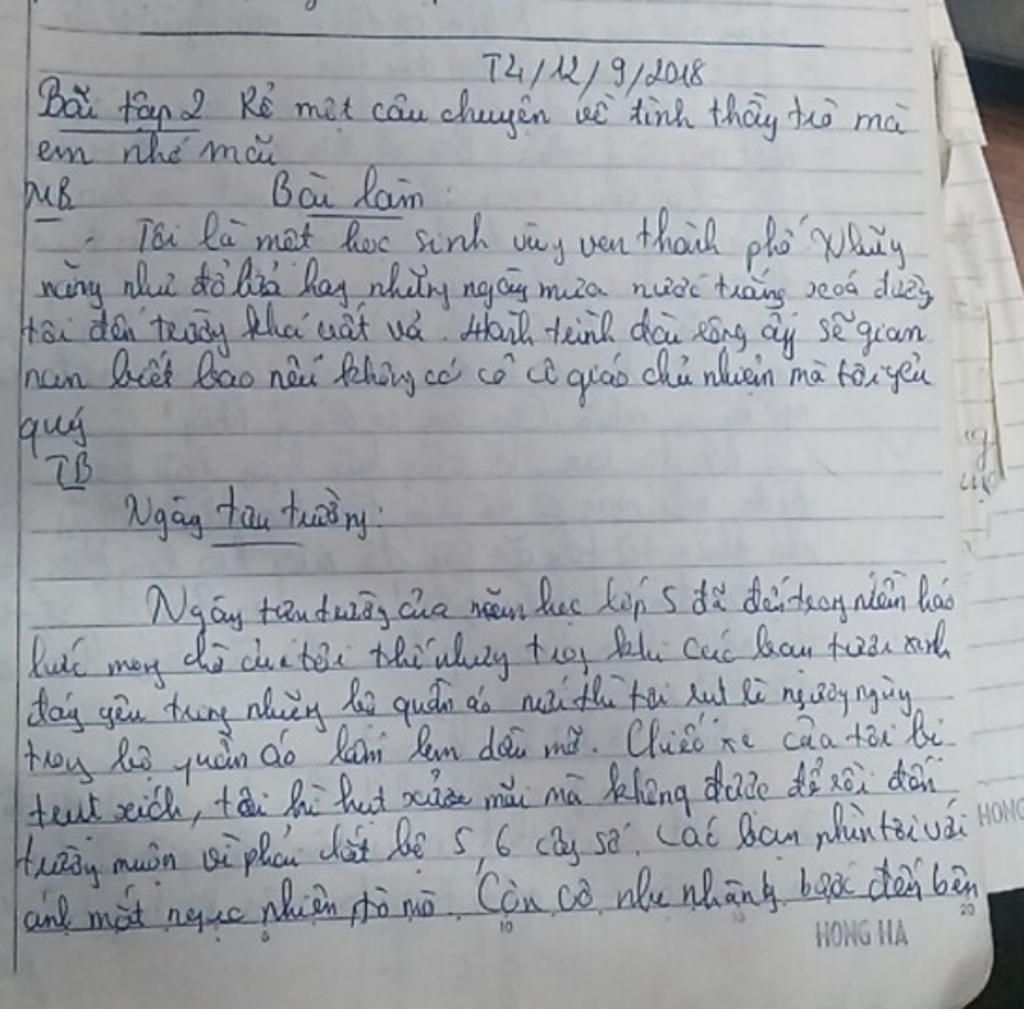 T4/12/9/2018
Bài tập 2 Kể một câu chuyện về tình thầy trò mà
em nhớ mãi
MB Bài làm:
- Tôi là một học sinh vùng ven thành phố Những
nắng như đổ lửa hay những ngày mưa nước trắng xoá đường
tôi đến trường khá vất vả. Hành trình đầu sông ấy sẽ gian
nan biết bao nếu không có cô cô giáo chủ nhiệm mà tôi yêu
quý
TB
Ngày tựu trường:
Ngày tựu trường của năm học lớp 5 đã đến trong niềm háo
hức mong chờ của tôi thế nhưng trong khi các bạn tươi xinh
đáng yêu trong những bộ quần áo mới thì tôi rụt rè ngượng ngùng
trong bộ quần áo lấm lem dầu mỡ. Chiếc xe của tôi bị
trụt xích, tôi hì hụt sửa mãi mà không được để rồi đến
trường muộn vì phải dắt bộ 5, 6 cây số. Các bạn nhìn tôi với
ánh mắt ngạc nhiên, tò mò. Còn cô nhẹ nhàng bước đến bên
5 10 15 20
HONG HA
HONG